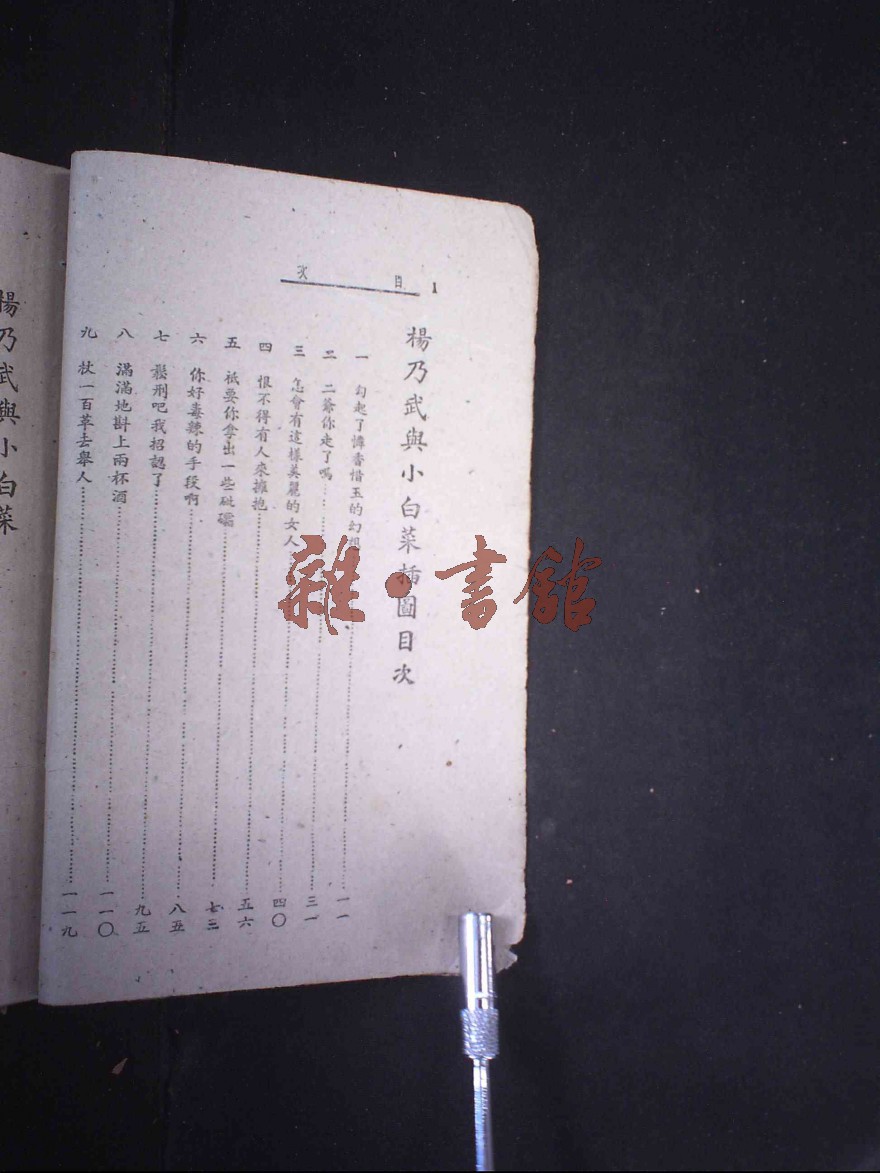 目次
1
楊乃武與小白菜插圖目次
一 勾起了憐香惜玉的幻想……一一
二 二爺你走了嗎……三一
三 怎會有這樣美麗的女人……四〇
四 恨不得有人來擁抱……五六
五 祇要你拿出一些砒礵……七三
六 你好毒辣的手段啊……八五
七 鬆刑吧我招認了……九五
八 滿滿地斟上兩杯酒……一一〇
九 杖一百革去舉人……一一九
楊乃武與小白菜
雜·書館